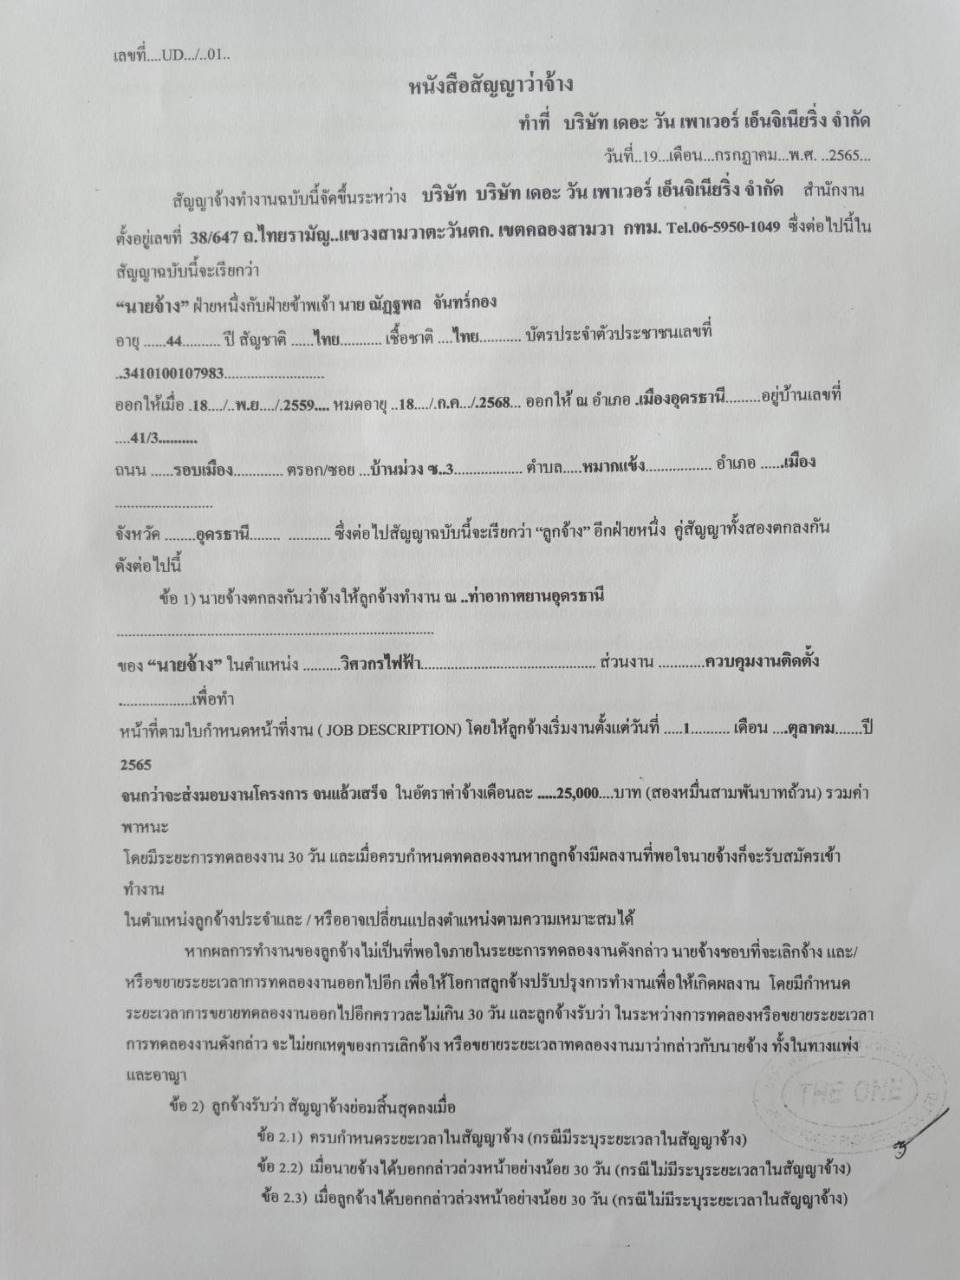 เลขที่....UD.../..01..
หนังสือสัญญาว่าจ้าง
ทำที่ บริษัท เดอะ วัน เพาเวอร์ เอ็นจิเนียริ่ง จำกัด
วันที่..19...เดือน...กรกฎาคม...พ.ศ. ..2565...
สัญญาจ้างทำงานฉบับนี้จัดขึ้นระหว่าง บริษัท บริษัท เดอะ วัน เพาเวอร์ เอ็นจิเนียริ่ง จำกัด สำนักงาน
ตั้งอยู่เลขที่ 38/647 ถ.ไทยรามัญ..แขวงสามวาตะวันตก. เขตคลองสามวา กทม. Tel.06-5950-1049 ซึ่งต่อไปนี้ใน
สัญญาฉบับนี้จะเรียกว่า
“นายจ้าง” ฝ่ายหนึ่งกับฝ่ายข้าพเจ้า นาย ณัฏฐพล จันทร์กอง
อายุ ......44.......... ปี สัญชาติ ......ไทย........... เชื้อชาติ ....ไทย........... บัตรประจำตัวประชาชนเลขที่
..3410100107983..........................
ออกให้เมื่อ .18..../..พ.ย..../.2559.... หมดอายุ ..18..../.ก.ค.../.2568... ออกให้ ณ อำเภอ .เมืองอุดรธานี.........อยู่บ้านเลขที่
....41/3..........
ถนน ......รอบเมือง............. ตรอก/ซอย ...บ้านม่วง ซ..3.................. ตำบล.....หมากแข้ง................. อำเภอ ......เมือง
.........................
จังหวัด ........อุดรธานี........ ........... ซึ่งต่อไปสัญญาฉบับนี้จะเรียกว่า “ลูกจ้าง” อีกฝ่ายหนึ่ง คู่สัญญาทั้งสองตกลงกัน
ดังต่อไปนี้
ข้อ 1) นายจ้างตกลงกันว่าจ้างให้ลูกจ้างทำงาน ณ ..ท่าอากาศยานอุดรธานี
.................................................................................
ของ “นายจ้าง” ในตำแหน่ง ..........วิศวกรไฟฟ้า............................................. ส่วนงาน ............ควบคุมงานติดตั้ง
...................เพื่อทำ
หน้าที่ตามใบกำหนดหน้าที่งาน ( JOB DESCRIPTION) โดยให้ลูกจ้างเริ่มงานตั้งแต่วันที่ .....1.......... เดือน ....ตุลาคม.......ปี
2565
จนกว่าจะส่งมอบงานโครงการ จนแล้วเสร็จ ในอัตราค่าจ้างเดือนละ .....25,000....บาท (สองหมื่นสามพันบาทถ้วน) รวมค่า
พาหนะ
โดยมีระยะการทดลองงาน 30 วัน และเมื่อครบกำหนดทดลองงานหากลูกจ้างมีผลงานที่พอใจนายจ้างก็จะรับสมัครเข้า
ทำงาน
ในตำแหน่งลูกจ้างประจำและ / หรืออาจเปลี่ยนแปลงตำแหน่งตามความเหมาะสมได้
หากผลการทำงานของลูกจ้างไม่เป็นที่พอใจภายในระยะการทดลองงานดังกล่าว นายจ้างชอบที่จะเลิกจ้าง และ/
หรือขยายระยะเวลาการทดลองงานออกไปอีก เพื่อให้โอกาสลูกจ้างปรับปรุงการทำงานเพื่อให้เกิดผลงาน โดยมีกำหนด
ระยะเวลาการขยายทดลองงานออกไปอีกคราวละไม่เกิน 30 วัน และลูกจ้างรับว่า ในระหว่างการทดลองหรือขยายระยะเวลา
การทดลองงานดังกล่าว จะไม่ยกเหตุของการเลิกจ้าง หรือขยายระยะเวลาทดลองงานมาว่ากล่าวกับนายจ้าง ทั้งในทางแพ่ง
และอาญา
ข้อ 2) ลูกจ้างรับว่า สัญญาจ้างย่อมสิ้นสุดลงเมื่อ
ข้อ 2.1) ครบกำหนดระยะเวลาในสัญญาจ้าง (กรณีมีระบุระยะเวลาในสัญญาจ้าง)
ข้อ 2.2) เมื่อนายจ้างได้บอกกล่าวล่วงหน้าอย่างน้อย 30 วัน (กรณีไม่มีระบุระยะเวลาในสัญญาจ้าง)
ข้อ 2.3) เมื่อลูกจ้างได้บอกกล่าวล่วงหน้าอย่างน้อย 30 วัน (กรณีไม่มีระบุระยะเวลาในสัญญาจ้าง)